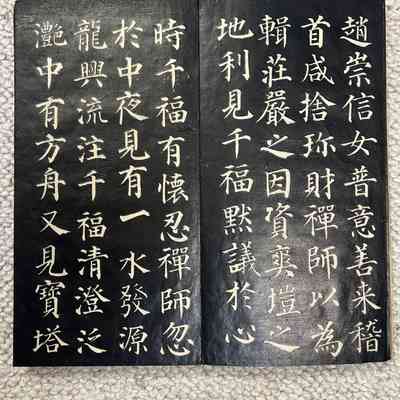 趙崇信女普意善来稽
首咸捨珎財禪師以為
輯莊嚴之因資爽塏之
地利見千福默議於心
時千福有懷忍禪師忽
於中夜見有一水發源
龍興流注千福清澄泛
灔中有方舟又見寶塔